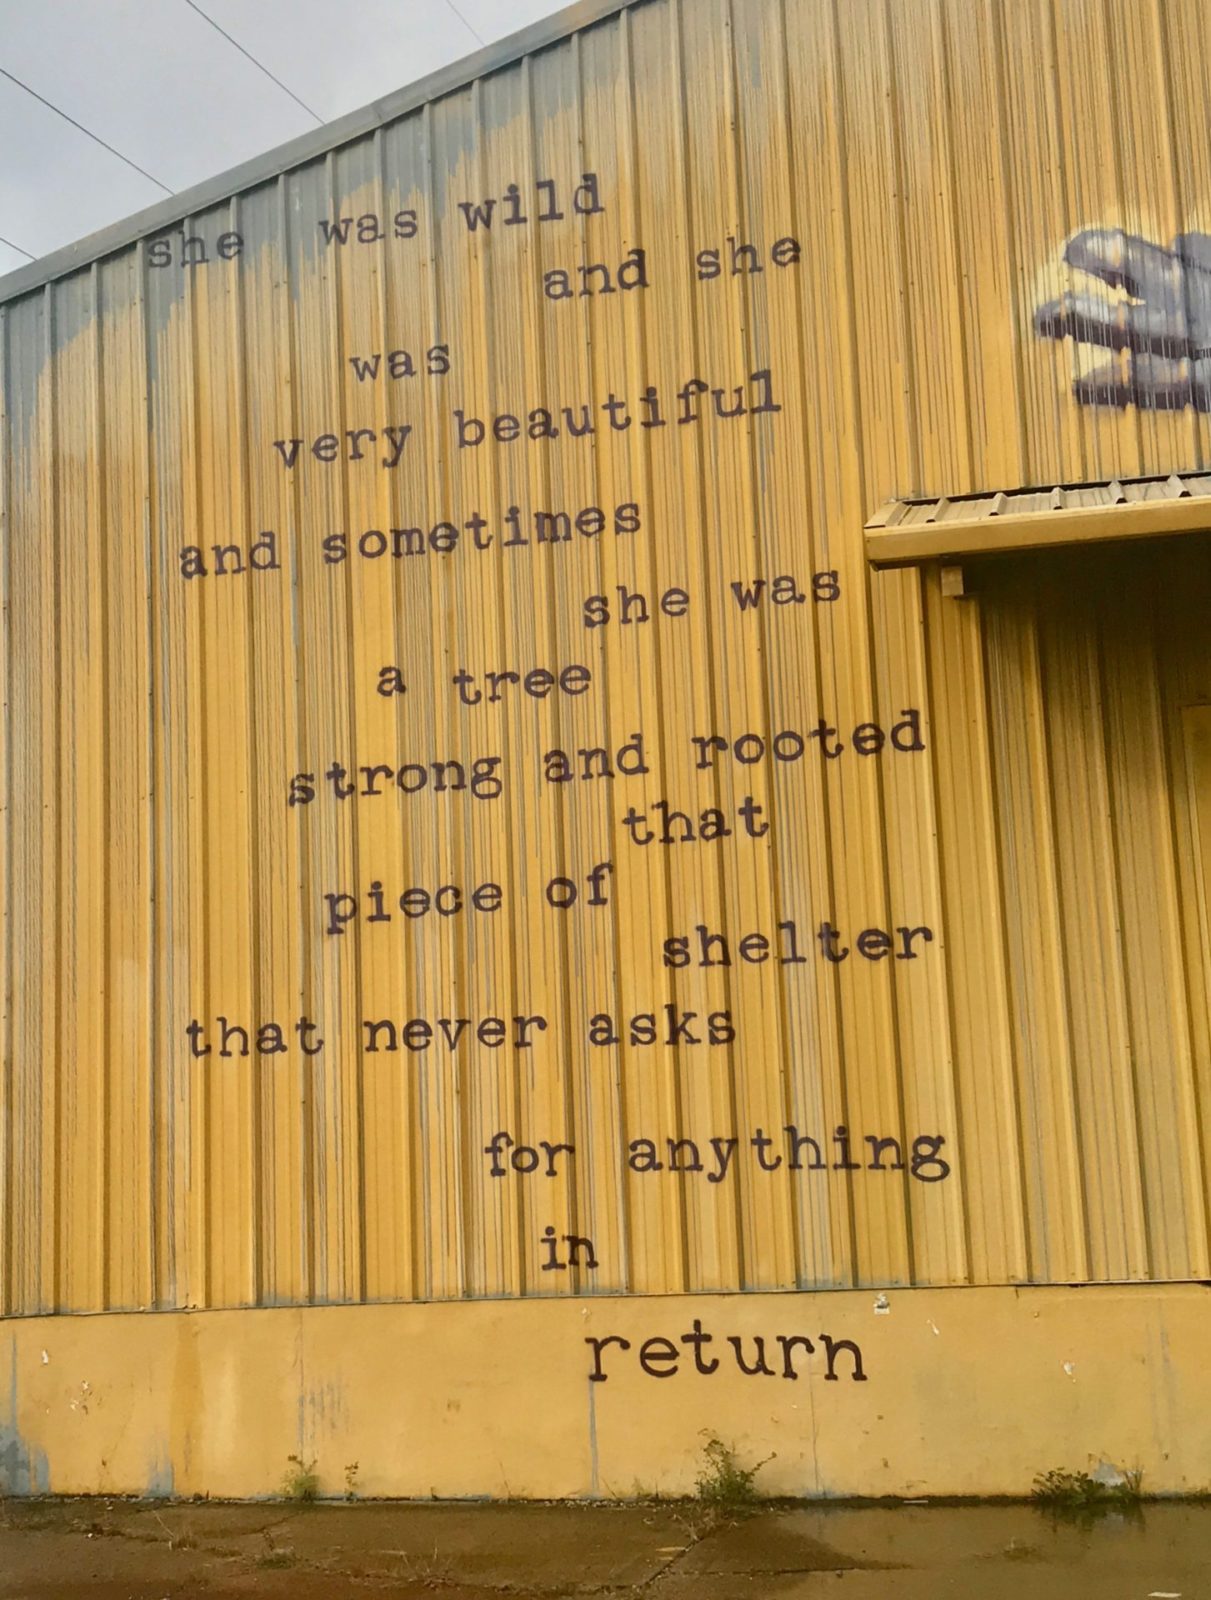 she was wild
and she
was
very beautiful
and sometimes
she was
a tree
strong and rooted
that
piece of
shelter
that never asks
for anything
in
return